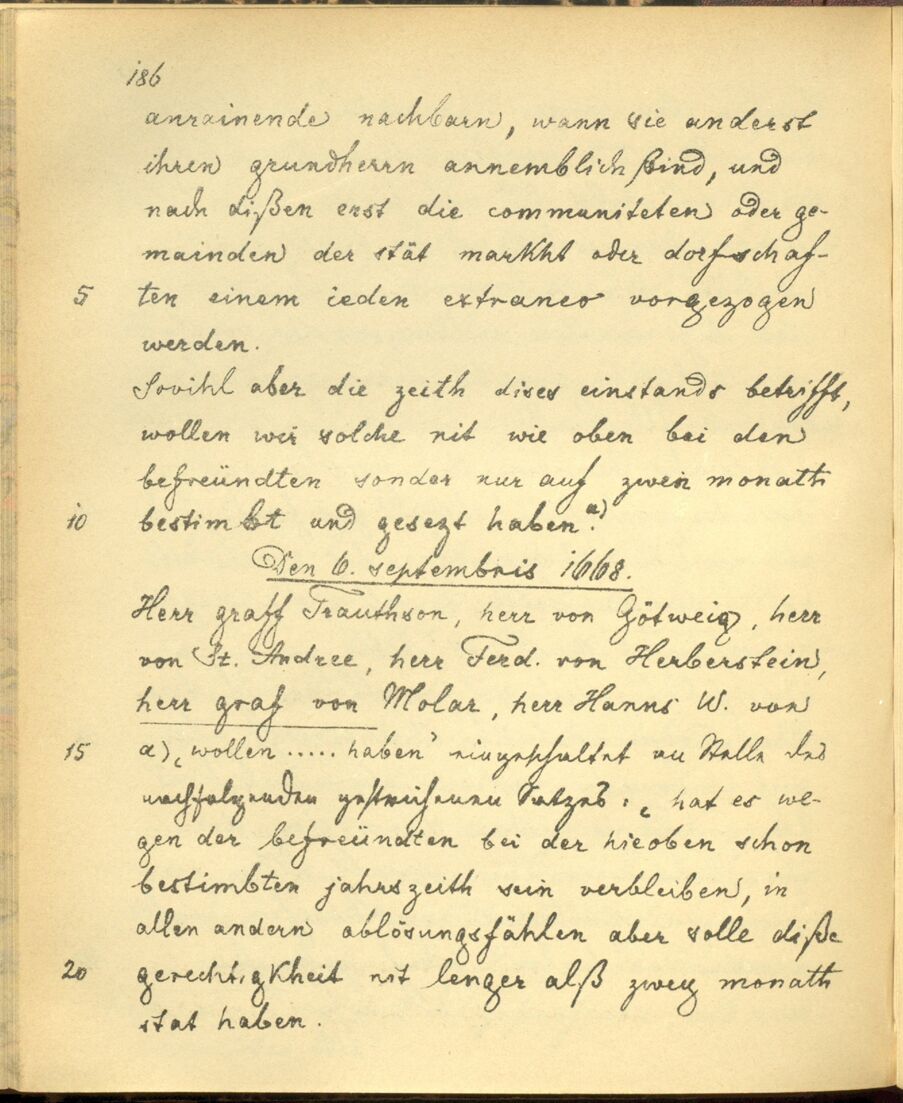 186
anrainende nachbarn, wann sie anderst
ihren grundherrn annemblich sind, und
nach dißen erst die communiteten oder ge-
mainden der stät markht oder dorfschaf-
5 ten einem ieden extraneo vorgezogen
werden.
Sovihl aber die zeith dises einstands betrifft,
wollen wir solche nit wie oben bei den
befreündten sonder nur auf zwen monath
10 bestimbt und gesezt haben.a)
Den 6. septembris 1668.
Herr graff Trauthson, herr von Götweig, herr
von St. Andree, herr Ferd. von Herberstein,
herr graf von Molar, herr Hanns W. von
15 a) „wollen ..... haben" eingeschaltet an Stelle des
nachfolgenden gestrichenen Satzes: „hat es we-
gen der befreündten bei der hieoben schon
bestimbten jahrszeith sein verbleiben, in
allen andern ablösungsfählen aber solle diße
20 gerechtigkheit nit lenger alß zwey monath
stat haben.